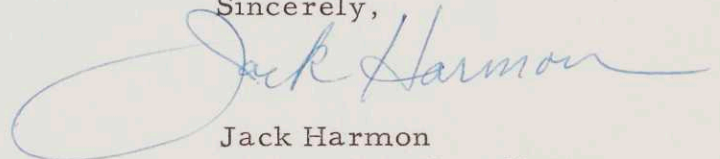 Sincerely,
Jack Harmon
Jack Harmon